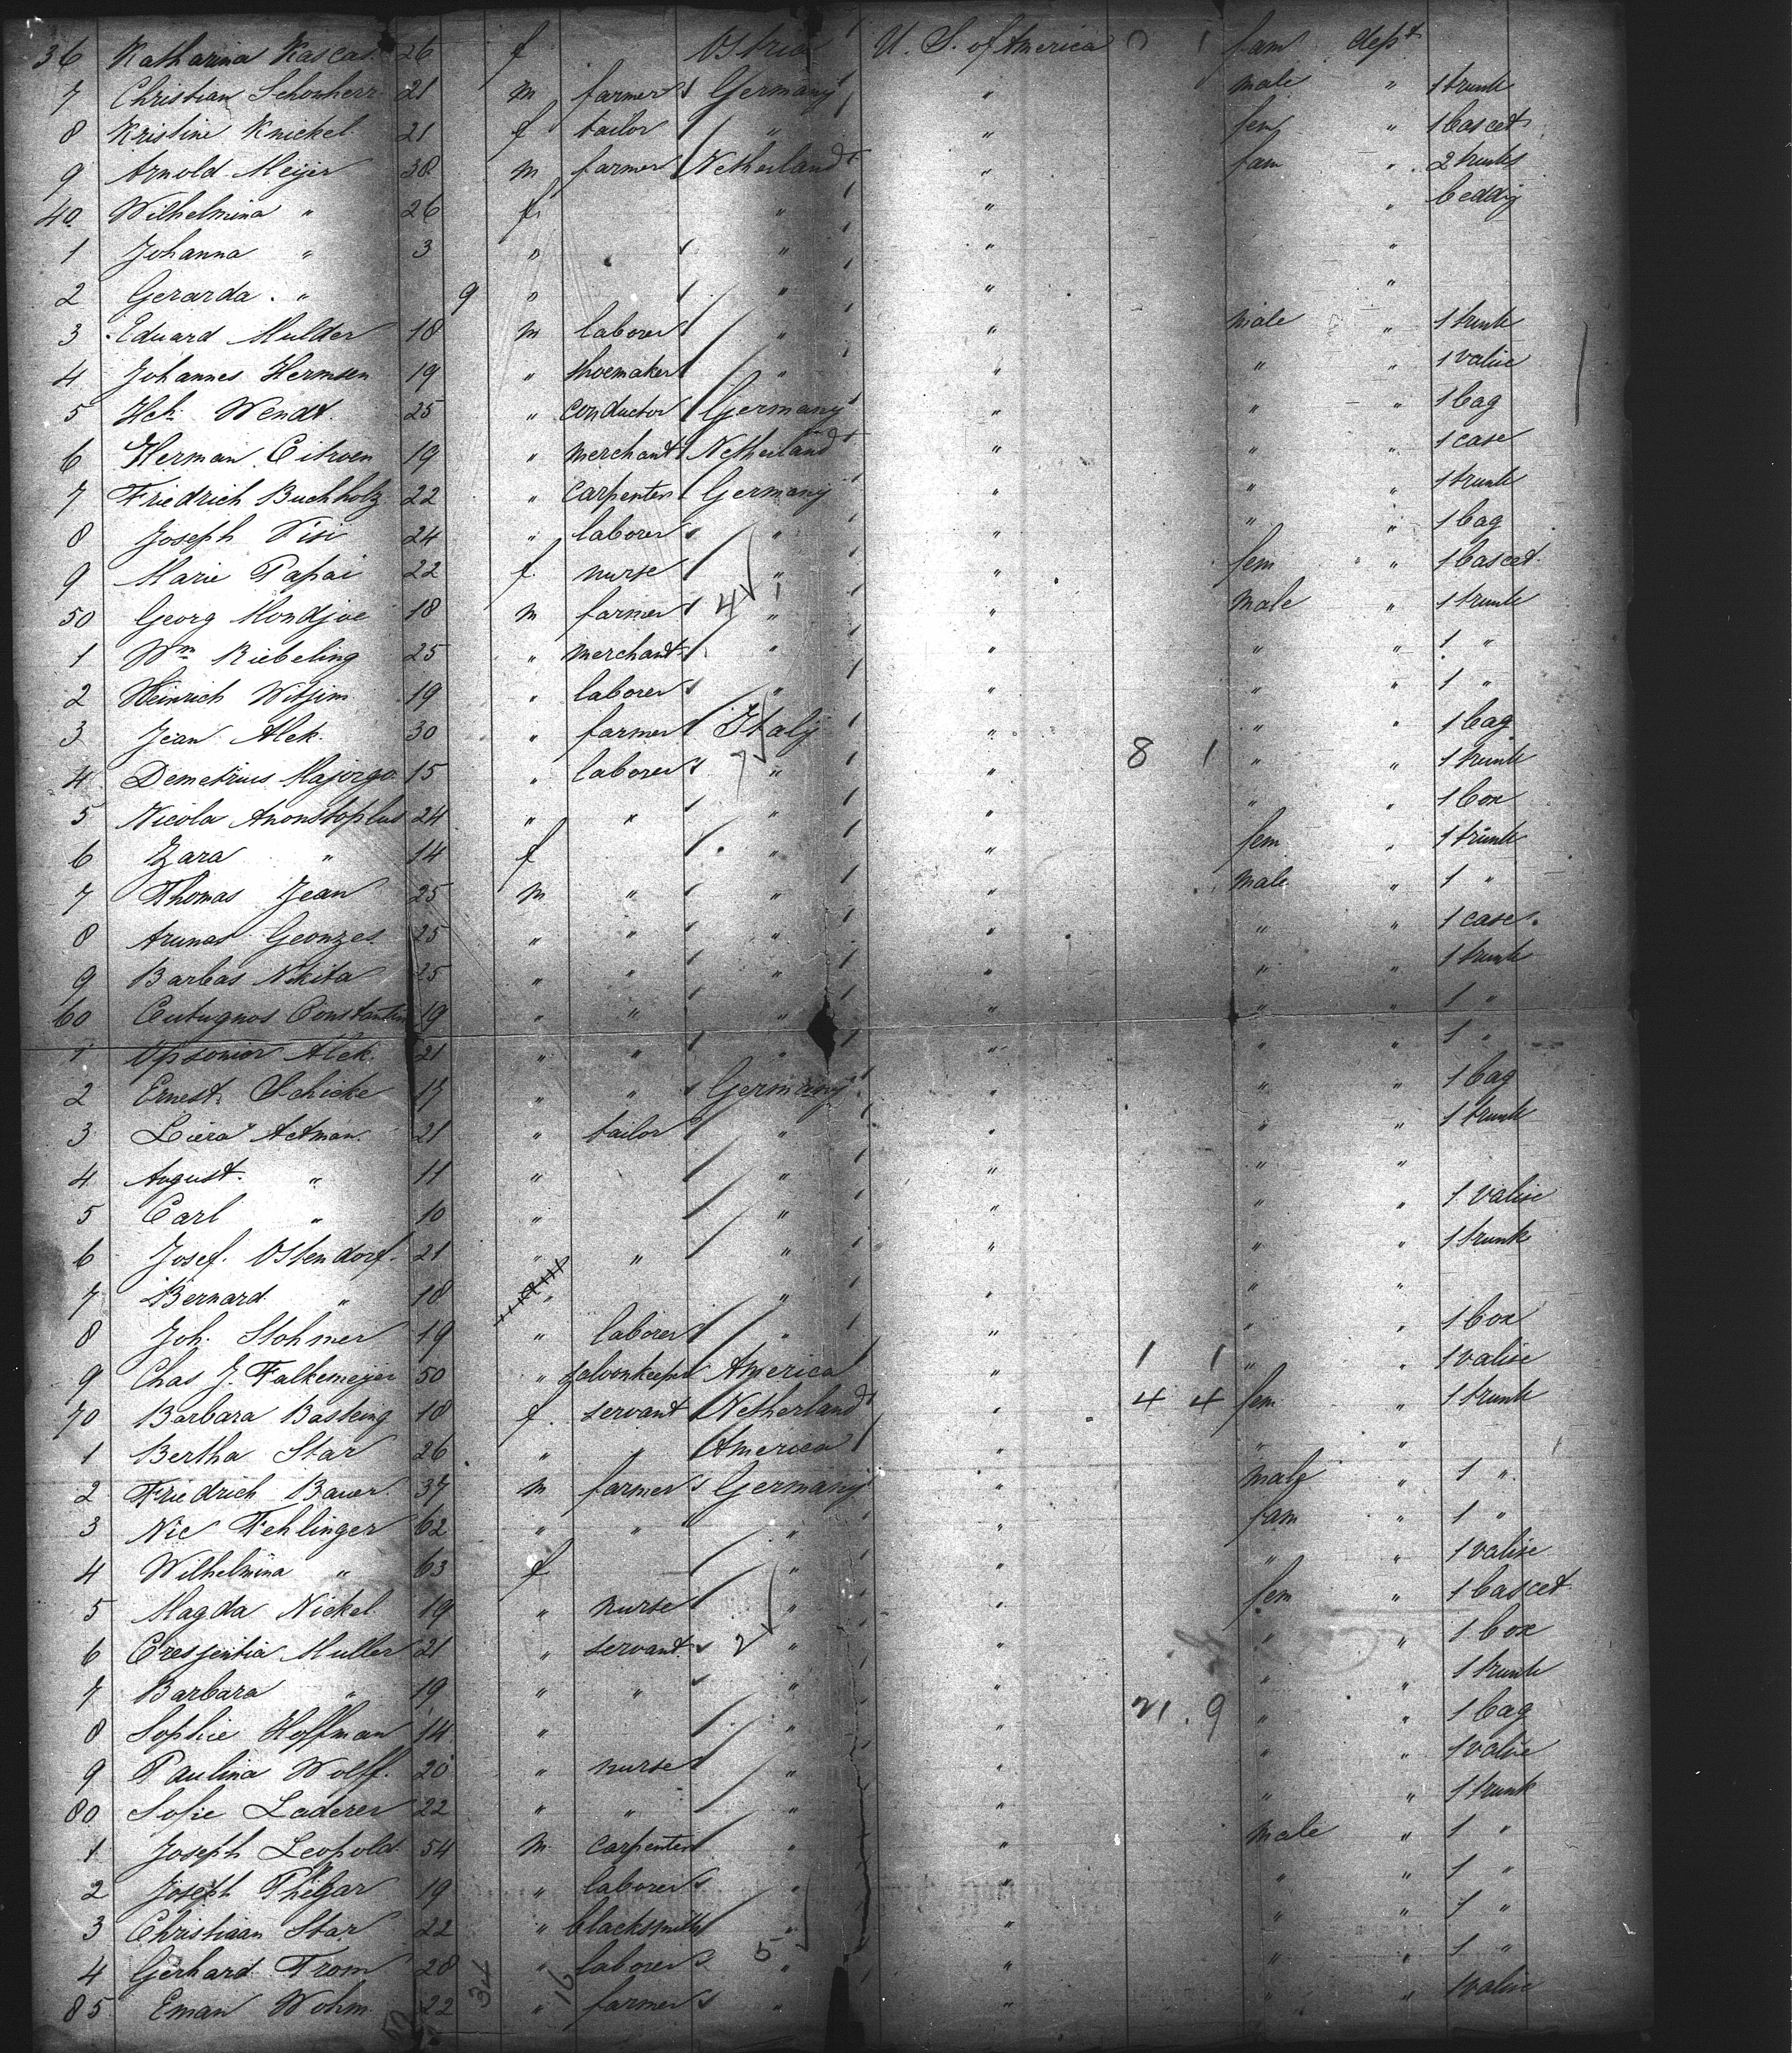 36 Katharina Kascas 26 f Ostria U. S. of America 0 1 fam dept
7 Christian Schonherr 21 m farmer Germany " male " 1 trunk
8 Kristine Knickel 21 f tailor " " fem " 1 bascet
9 Arnold Meijer 38 m farmer Netherland " fam " 2 trunks
40 Wilhelmina " 26 f " " " beddig
1 Johanna " 3 " " " "
2 Gerarda " 9 " " " "
3 Eduard Mulder 18 m laborer " " male " 1 trunk
4 Johannes Hermsen 19 " shoemaker " " " " 1 valise
5 Hch Wendt 25 " conductor Germany " " " 1 bag
6 Herman Citroen 19 " merchant Netherland " " " 1 case
7 Friedrich Buchholz 22 " carpenter Germany " " " 1 trunk
8 Joseph Visi 24 " laborer " " " " 1 bag
9 Marie Papai 22 f nurse " " fem " 1 bascet
50 Georg Mondjoe 18 m farmer 4 " " male " 1 trunk
1 Wm Riebeling 25 " merchant " " " " 1 "
2 Heinrich Witjim 19 " laborer " " " " 1 "
3 Jean Alek 30 " farmer Italy " " " 1 bag
4 Demetrius Majorgo 15 " laborer 7 " " 8 1 " " 1 trunk
5 Nicola 24 " " " " " " 1 box
6 Zara " 14 f " " fem " 1 trunk
7 Thomas Jean 25 m " " " male " 1 "
8 Arunas Geonzes 25 " " " " " " 1 case
9 Barbas Nikita 25 " " " " " " 1 trunk
60 Cutugnos Constantin 19 " " " " " " 1 "
1 Opsomor Alek 21 " " " " " " 1 "
2 Ernest Schicke 17 " " Germany " " " 1 bag
3 Actman 21 " tailor " " " " 1 trunk
4 August " 11 " " " " "
5 Carl " 10 " " " " " 1 valise
6 Josef Ostendorf 21 " " " " " " 1 trunk
7 Bernard " 18 " " " " "
8 Joh. Stohmer 19 " laborer " " " " 1 box
9 Chas J. Falkemeyer 50 " saloonkeeper America " 1 1 " " 1 valise
70 Barbara Basteing 18 f servant Netherland " 4 4 fem " 1 trunk
1 Bertha Star 26 " " America " " "
2 Friedrich Bauer 37 m farmer Germany " male " 1 "
3 Nic Fehlinger 62 " " " " fam " 1 "
4 Wilhelmina " 63 f " " " " 1 valise
5 Magda Nickel 19 " nurse " " fem " 1 bascet
6 Cresjentia Muller 21 " servant 2 " " " " 1 box
7 Barbara " 19 " " " " " " 1 trunk
8 Sophie Hoffman 14 " " " 21 9 " " 1 bag
9 Paulina Wolff 20 " nurse " " " " 1 valise
80 Sofie Laderer 22 " " " " " " 1 trunk
1 Joseph Leopold 54 m carpenter " " male " 1 "
2 Joseph Phegar 19 " laborer " " " " 1 "
3 Christiaan Star 22 " blacksmith " " " " 1 "
4 Gerhard From 28 " laborer 5 " " " " 1 "
85 Eman Wohm 22 " farmer " " " " 1 valise
34 16